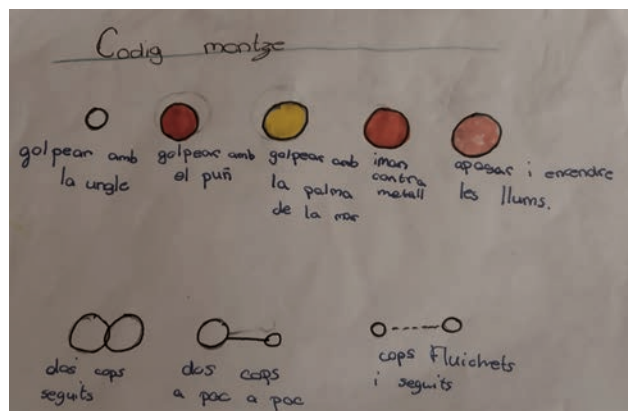 Codig montze
golpear amb
la ungle
golpear amb
el puñ
golpear amb
la palma
de la mar
iman
contra
metall
apagar i encendre
les llums.
dos cops
seguits
dos cops
a poc a poc
cops Fluichets
i seguits